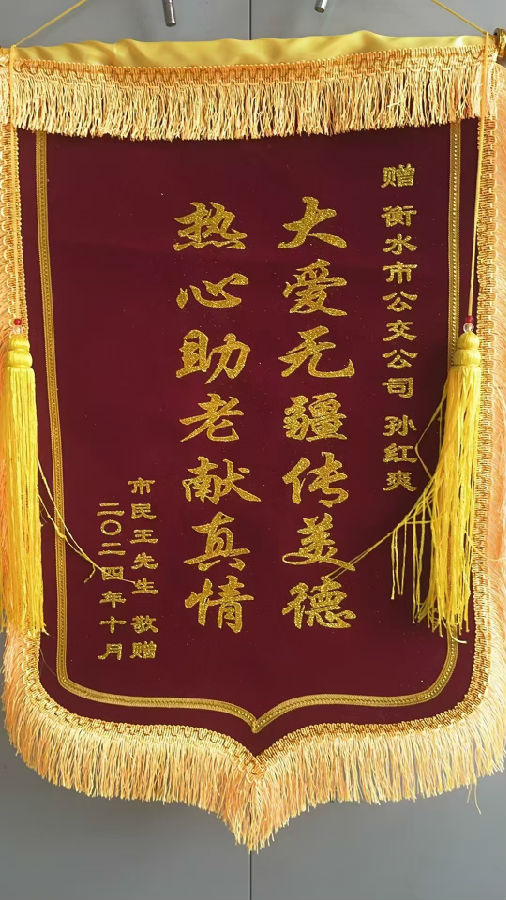 赠 衡水市公交公司 孙红爽
大爱无疆传美德
热心助老献真情
市民王先生 敬赠
二〇二四年十月